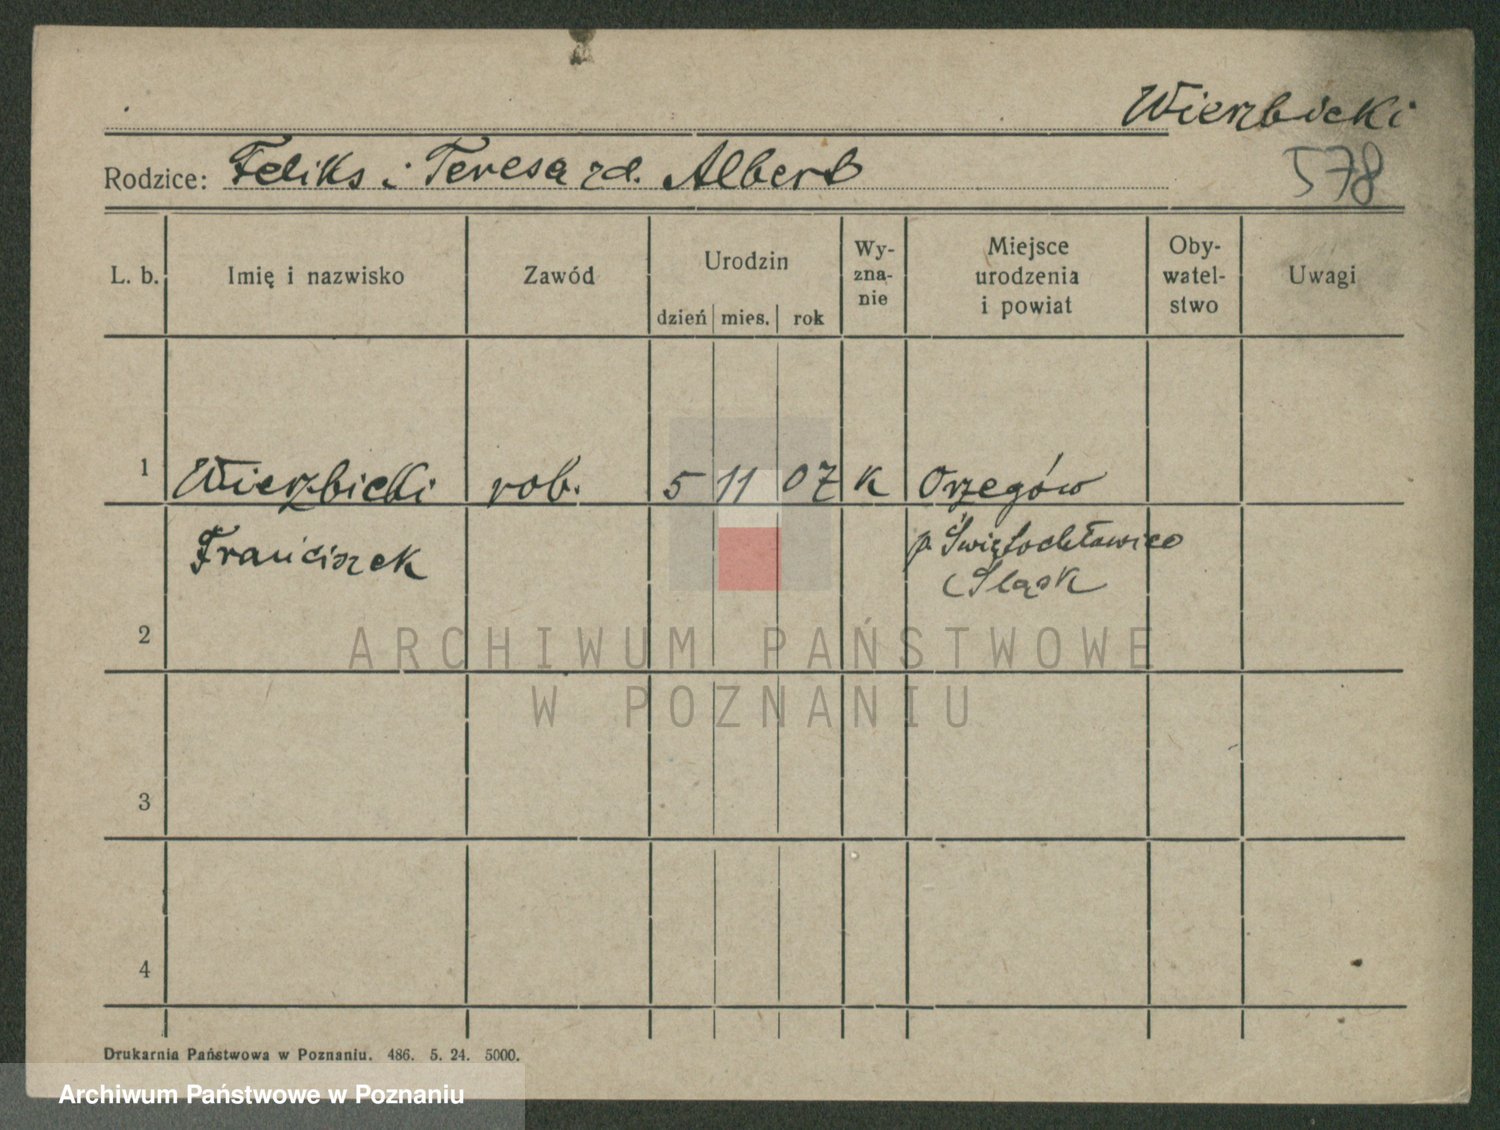 Wierzbicki
578
Rodzice: Feliks i Teresa zd. Albert
L. b. Imię i nazwisko Zawód Urodzin dzień mies. rok Wy-zna-nie Miejsce urodzenia i powiat Oby-watel-stwo Uwagi
1 Wierzbicki rob. 5 11 07 k Orzegów
Franciszek p. Świętochławice
Śląsk
2
ARCHIWUM PAŃSTWOWE
W POZNANIU
3
4
Drukarnia Państwowa w Poznaniu. 486. 5. 24. 5000.
Archiwum Państwowe w Poznaniu